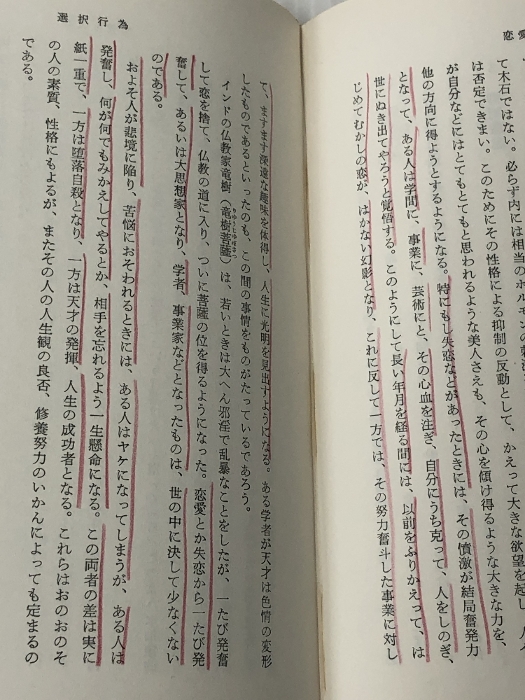 恋愛
て木石ではない。必らず内には相当のホルモンの刺激
は否定できまい。このためにその性格による抑制の反動として、かえって大きな欲望を起し、
が自分などにはとてもとても思われるような美人さえも、その心を傾け得るような大きな力を、
他の方向に得ようとするようになる。特にもし失恋などがあったときには、その憤激が結局奮発力
となって、ある人は学問に、事業に、芸術にと、その心血を注ぎ、自分にうち克って、人をしのぎ、
世にぬき出てやろうと覚悟する。このようにして長い年月を経る間には、以前をふりかえって、は
じめてむかしの恋が、はかない幻影となり、これに反して一方では、その努力奮斗した事業に対し
選択行為
て、ますます深遠な趣味を体得し、人生に光明を見出すようになる。ある学者が天才は色情の変形
したものであるといったのも、この間の事情をものがたっているであろう。
インドの仏教家竜樹（竜樹菩薩りゅうじゅぼさつ）は、若いときは大へん邪淫で乱暴なことをしたが、一たび発奮
して恋を捨て、仏教の道に入り、ついに菩薩の位を得るようになった。恋愛とか失恋から一たび発
奮して、あるいは大思想家となり、学者、事業家などとなったものは、世の中に決して少なくない
のである。
およそ人が悲境に陥り、苦悩におそわれるときには、ある人はヤケになってしまうが、ある人は
発奮し、何が何でもみかえしてやるとか、相手を忘れるよう一生懸命になる。この両者の差は実に
紙一重で、一方は堕落自殺となり、一方は天才の発揮、人生の成功者となる。これらはおのおのそ
の人の素質、性格にもよるが、またその人の人生観の良否、修養努力のいかんによっても定まるの
である。